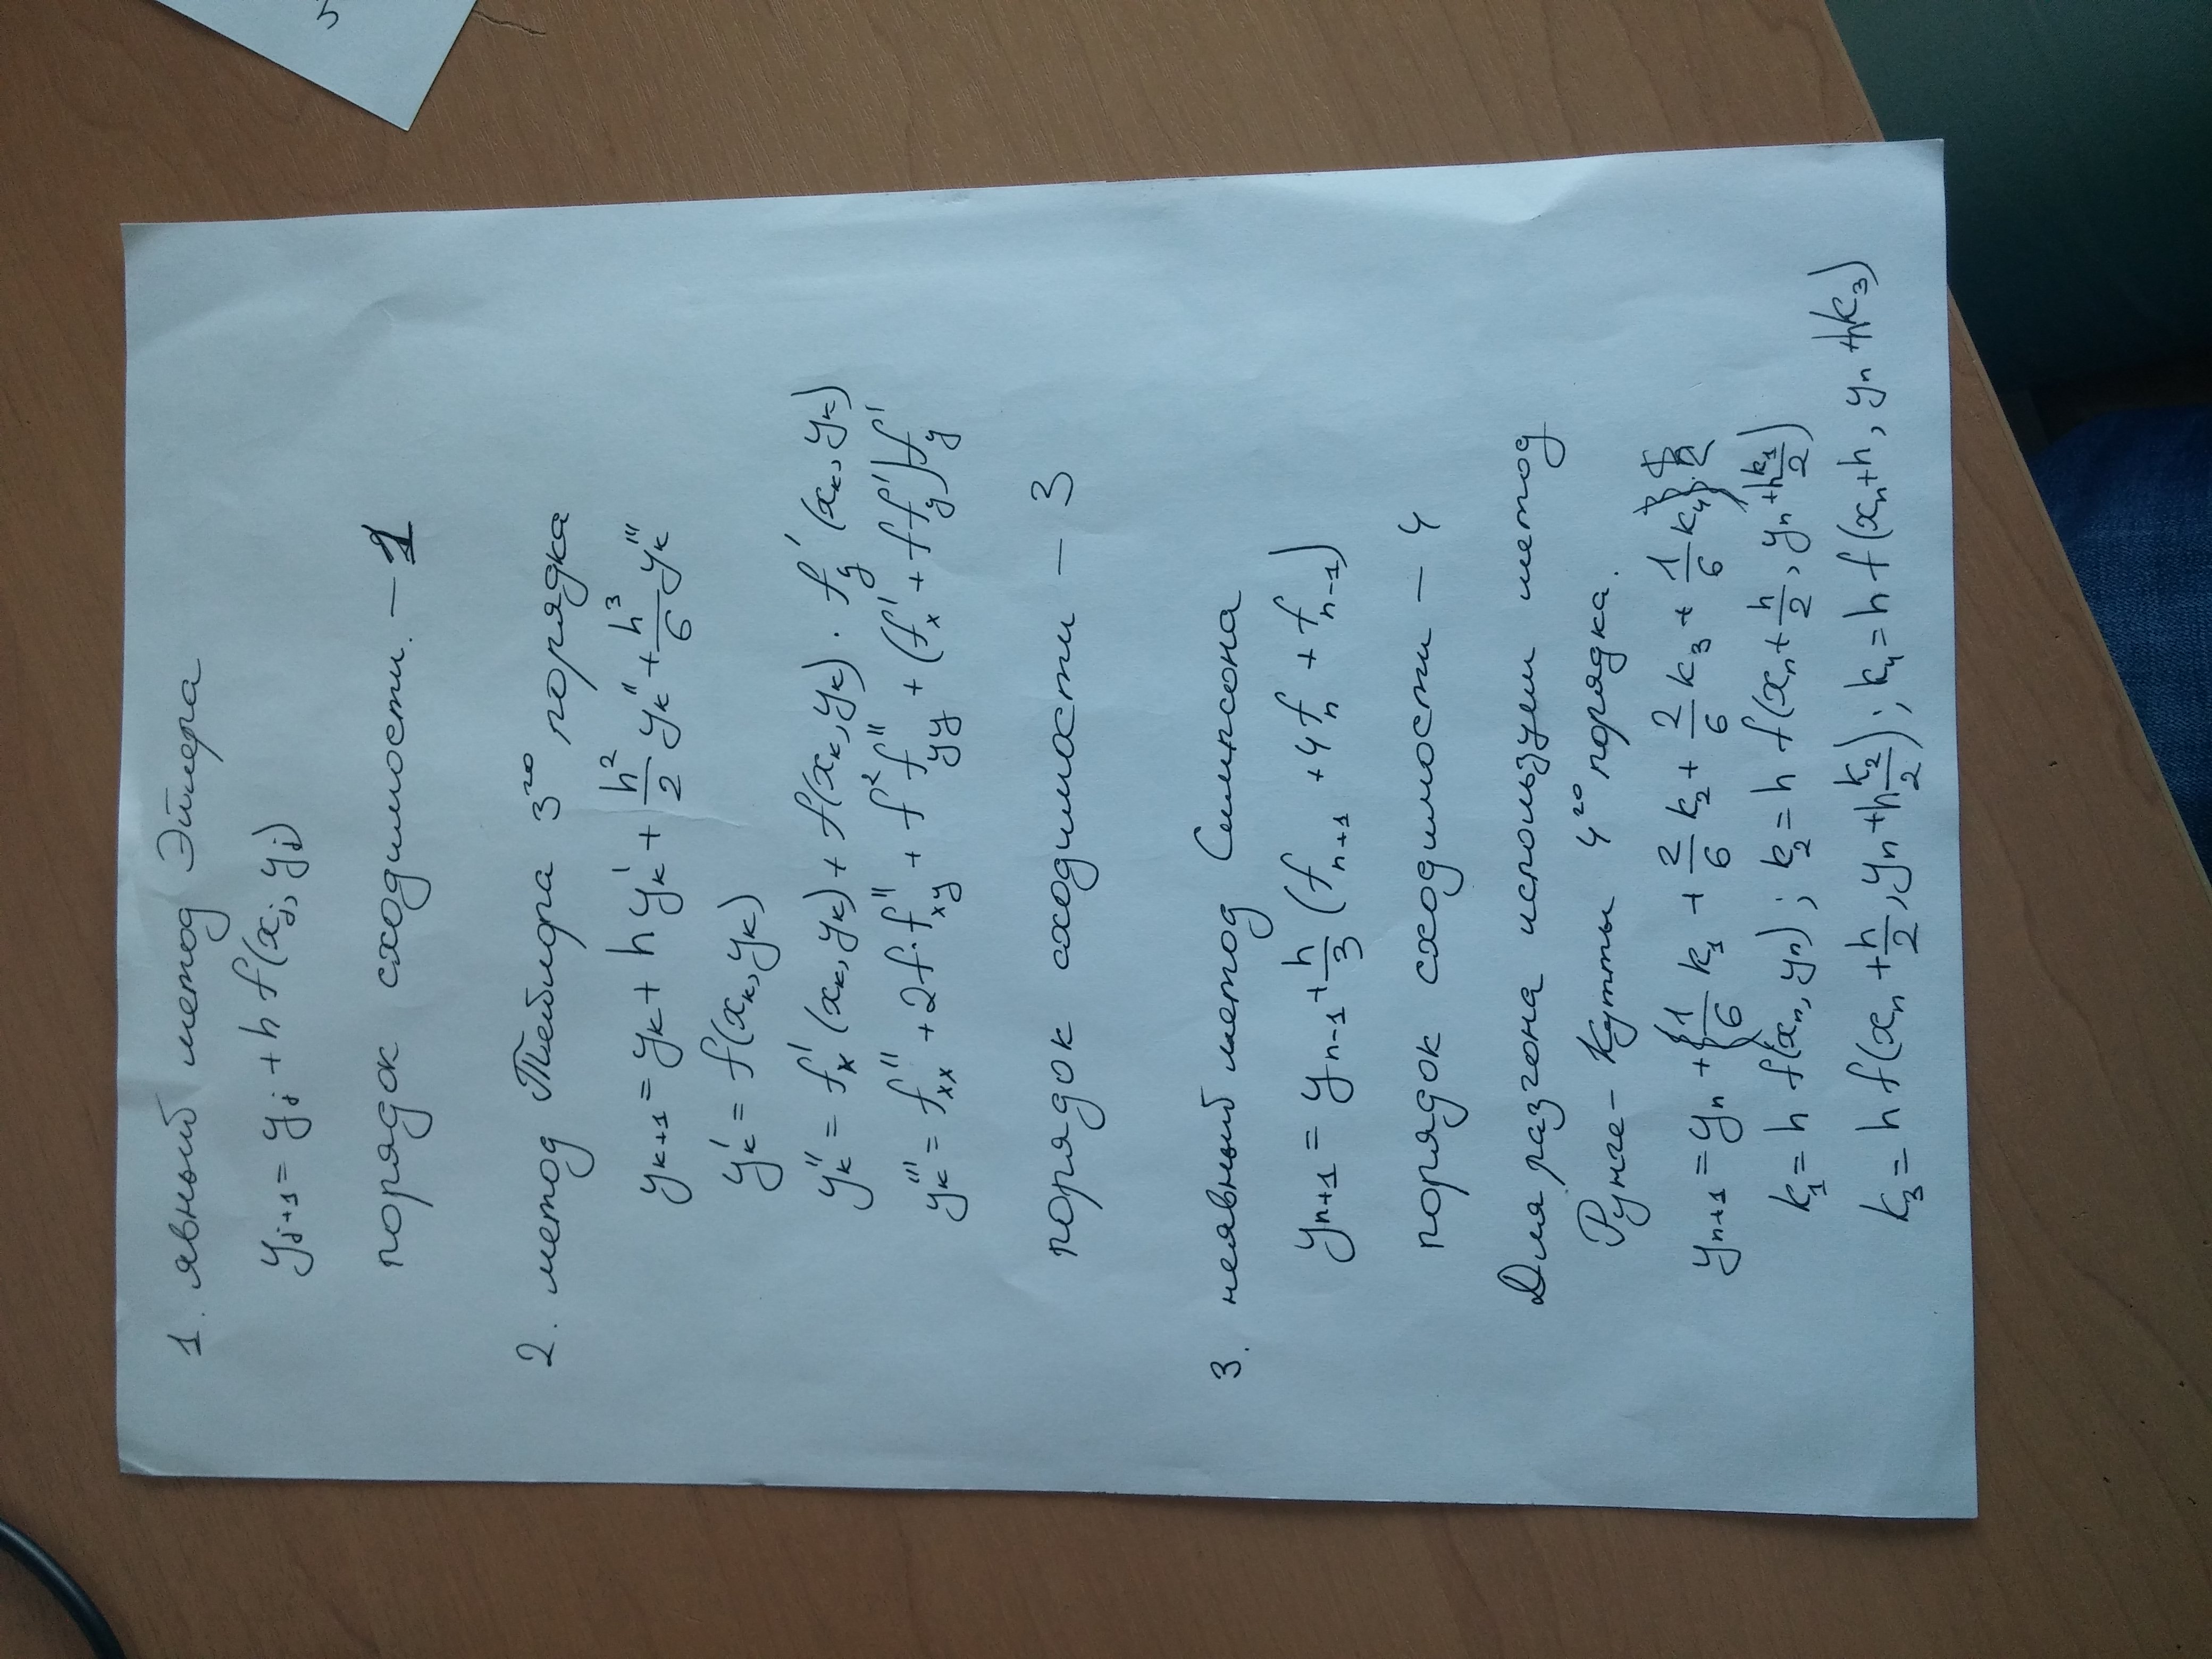 1. явный метод Эйлера
y_{j+1} = y_j + h f(x_j, y_j)
порядок сходимости. – 1
2. метод Тейлора 3^{го} порядка
y_{k+1} = y_k + h y'_k + \frac{h^2}{2} y''_k + \frac{h^3}{6} y'''_k
y'_k = f(x_k, y_k)
y''_k = f'_x (x_k, y_k) + f(x_k, y_k) · f'_y (x_k, y_k)
y'''_k = f''_{xx} + 2f · f''_{xy} + f^2 f''_{yy} + (f'_x + f f'_y) f'_y
порядок сходимости – 3
3. неявный метод Симпсона
y_{n+1} = y_{n-1} + \frac{h}{3} (f_{n+1} + 4f_n + f_{n-1})
порядок сходимости – 4
Для разгона используем метод
Рунге – Кутты 4^{го} порядка.
y_{n+1} = y_n + \frac{1}{6} k_1 + \frac{2}{6} k_2 + \frac{2}{6} k_3 + \frac{1}{6} k_4
k_1 = h f(x_n, y_n) ; k_2 = h f(x_n + \frac{h}{2}, y_n + h\frac{k_1}{2})
k_3 = h f(x_n + \frac{h}{2}, y_n + h\frac{k_2}{2}) ; k_4 = h f(x_n + h, y_n + hk_3)